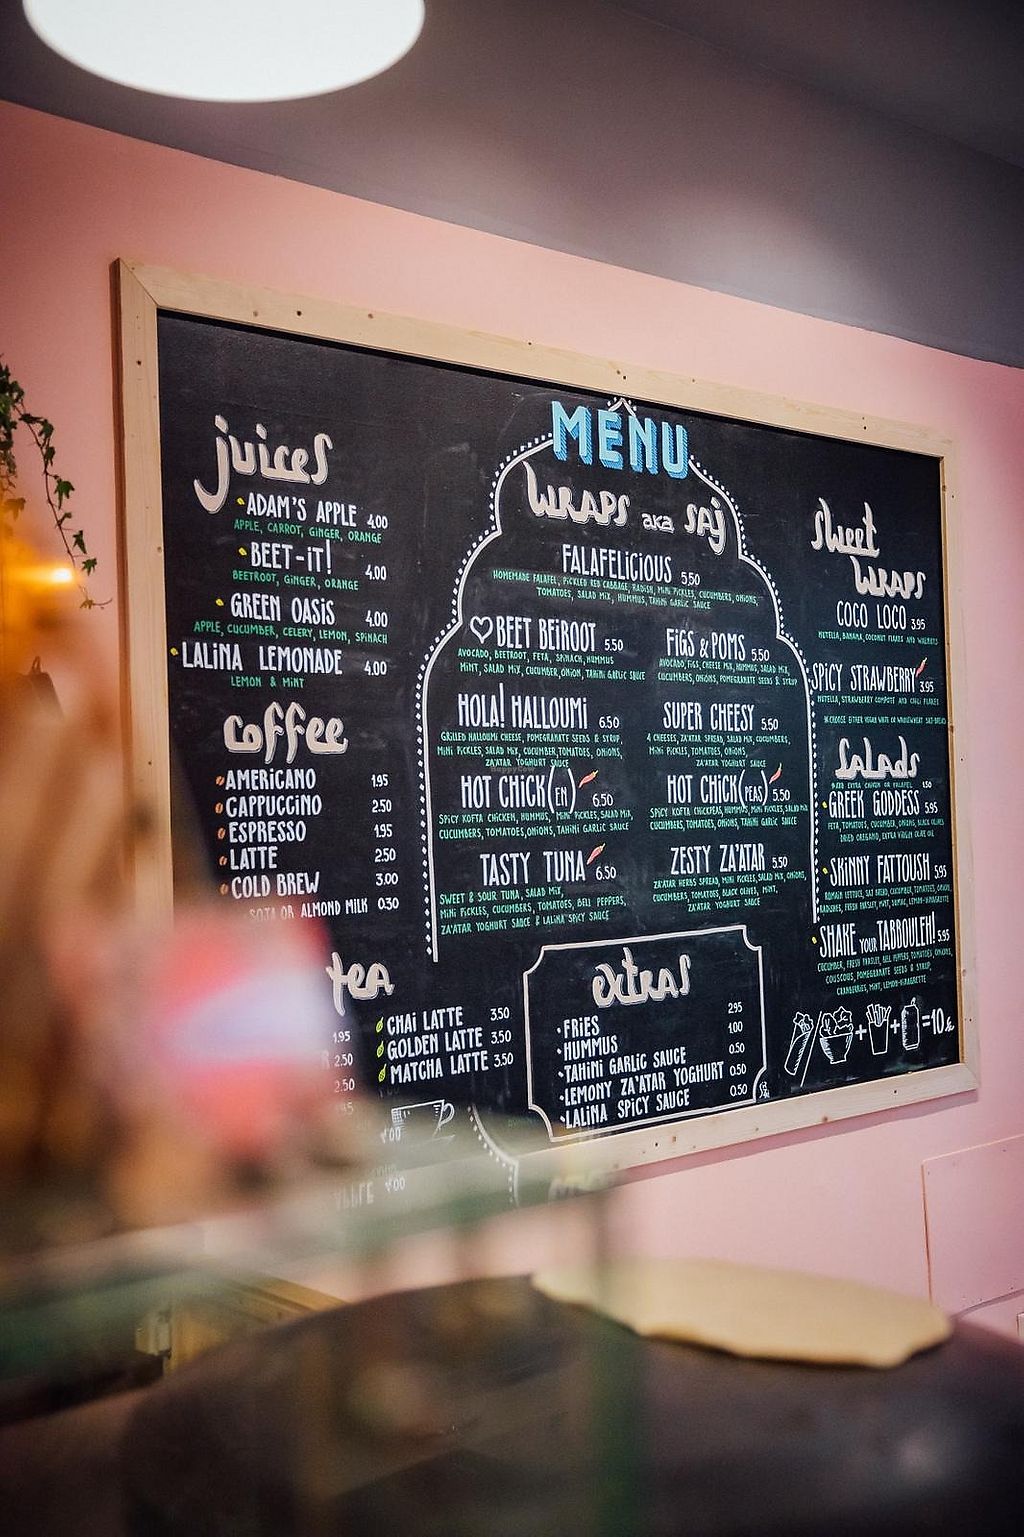 MENU
juices
ADAM'S APPLE 4.00
APPLE, CARROT, GINGER, ORANGE
BEET-IT! 4.00
BEETROOT, GINGER, ORANGE
GREEN OASIS 4.00
APPLE, CUCUMBER, CELERY, LEMON, SPINACH
LALINA LEMONADE 4.00
LEMON & MINT
coffee
AMERICANO 1.95
CAPPUCCINO 2.50
ESPRESSO 1.95
LATTE 2.50
COLD BREW 3.00
SOYA OR ALMOND MILK 0.30
tea
1.95
2.50
2.50
4.00
CHAI LATTE 3.50
GOLDEN LATTE 3.50
MATCHA LATTE 3.50
WRAPS aka SAJ
FALAFELICIOUS 5.50
HOMEMADE FALAFEL, PICKLED RED CABBAGE, RADISH, MINI PICKLES, CUCUMBERS, ONIONS,
TOMATOES, SALAD MIX, HUMMUS, TAHINI GARLIC SAUCE
BEET BEIROOT 5.50
AVOCADO, BEETROOT, FETA, SPINACH, HUMMUS
MINT, SALAD MIX, CUCUMBER, ONION, TAHINI GARLIC SAUCE
FIGS & POMS 5.50
AVOCADO, FIGS, CHEESE MIX, HUMMUS, SALAD MIX,
CUCUMBERS, ONIONS, POMEGRANATE SEEDS & SYRUP
HOLA! HALLOUMI 6.50
GRILLED HALLOUMI CHEESE, POMEGRANATE SEEDS & SYRUP,
MINI PICKLES, SALAD MIX, CUCUMBER, TOMATOES, ONIONS,
ZA'ATAR YOGHURT SAUCE
HappyCow
SUPER CHEESY 5.50
4 CHEESES, ZA'ATAR SPREAD, SALAD MIX, CUCUMBERS,
MINI PICKLES, TOMATOES, ONIONS,
ZA'ATAR YOGHURT SAUCE
HOT CHICK(EN) 6.50
SPICY KOFTA CHICKEN, HUMMUS, MINI PICKLES, SALAD MIX,
CUCUMBERS, TOMATOES, ONIONS, TAHINI GARLIC SAUCE
HOT CHICK(PEAS) 5.50
SPICY KOFTA CHICKPEAS, HUMMUS, MINI PICKLES, SALAD MIX,
CUCUMBERS, TOMATOES, ONIONS, TAHINI GARLIC SAUCE
TASTY TUNA 6.50
SWEET & SOUR TUNA, SALAD MIX,
MINI PICKLES, CUCUMBERS, TOMATOES, BELL PEPPERS,
ZA'ATAR YOGHURT SAUCE & LALINA SPICY SAUCE
ZESTY ZA'ATAR 5.50
ZA'ATAR HERBS SPREAD, MINI PICKLES, SALAD MIX, ONIONS,
CUCUMBERS, TOMATOES, BLACK OLIVES, MINT,
ZA'ATAR YOGHURT SAUCE
extras
FRIES 2.95
HUMMUS 1.00
TAHINI GARLIC SAUCE 0.50
LEMONY ZA'ATAR YOGHURT 0.50
LALINA SPICY SAUCE 0.50
Sweet
WRAPS
COCO LOCO 3.95
NUTELLA, BANANA, COCONUT FLAKES AND WALNUTS
SPICY STRAWBERRY 3.95
NUTELLA, STRAWBERRY COMPOTE AND CHILI FLAKES
CHOOSE EITHER VEGAN WHITE OR WHOLEWHEAT SAJ-BREAD
Salads
ADD EXTRA CHICKEN OR FALAFEL 1.50
GREEK GODDESS 5.95
FETA, TOMATOES, CUCUMBER, ONIONS, BLACK OLIVES
DRIED OREGANO, EXTRA VIRGIN OLIVE OIL
SKINNY FATTOUSH 5.95
ROMAIN LETTUCE, SAJ BREAD, CUCUMBER, TOMATOES, ONION,
RADISHES, FRESH PARSLEY, MINT, SUMAC, LEMON-VINAIGRETTE
SHAKE YOUR TABBOULEH! 5.95
CUCUMBER, FRESH PARSLEY, BELL PEPPERS, TOMATOES, ONIONS,
COUSCOUS, POMEGRANATE SEEDS & SYRUP,
CRANBERRIES, MINT, LEMON-VINAIGRETTE
+ + =10